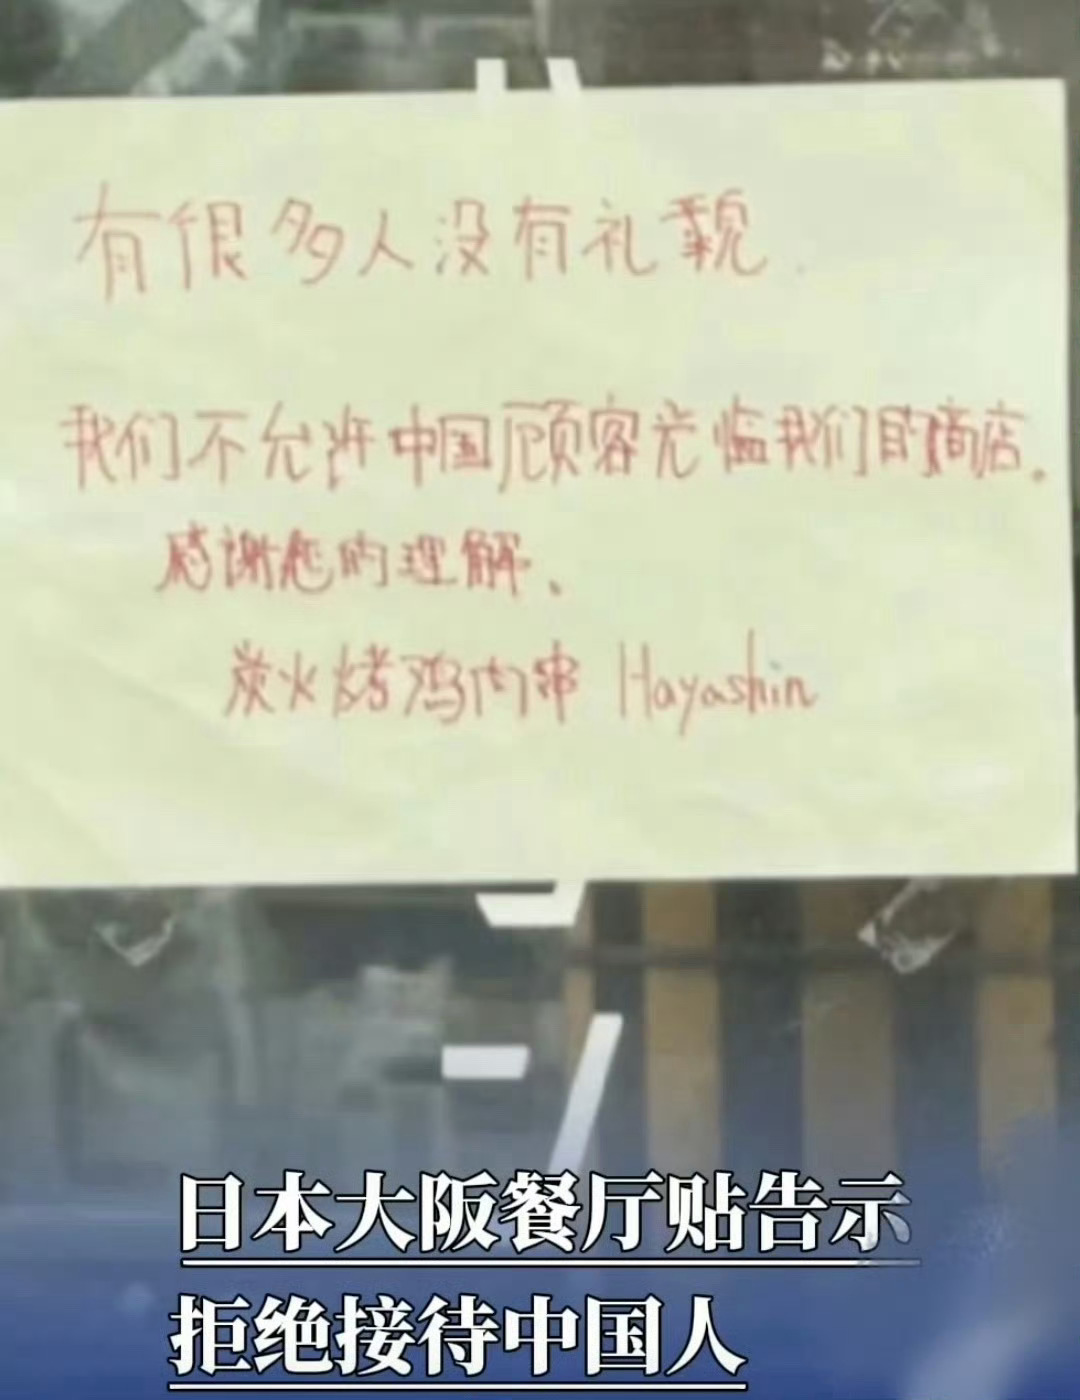 有很多人没有礼貌.
我们不允许中国顾客光临我们的商店.
感谢您的理解、
炭火烤鸡肉串 Hayashin
日本大阪餐厅贴告示
拒绝接待中国人